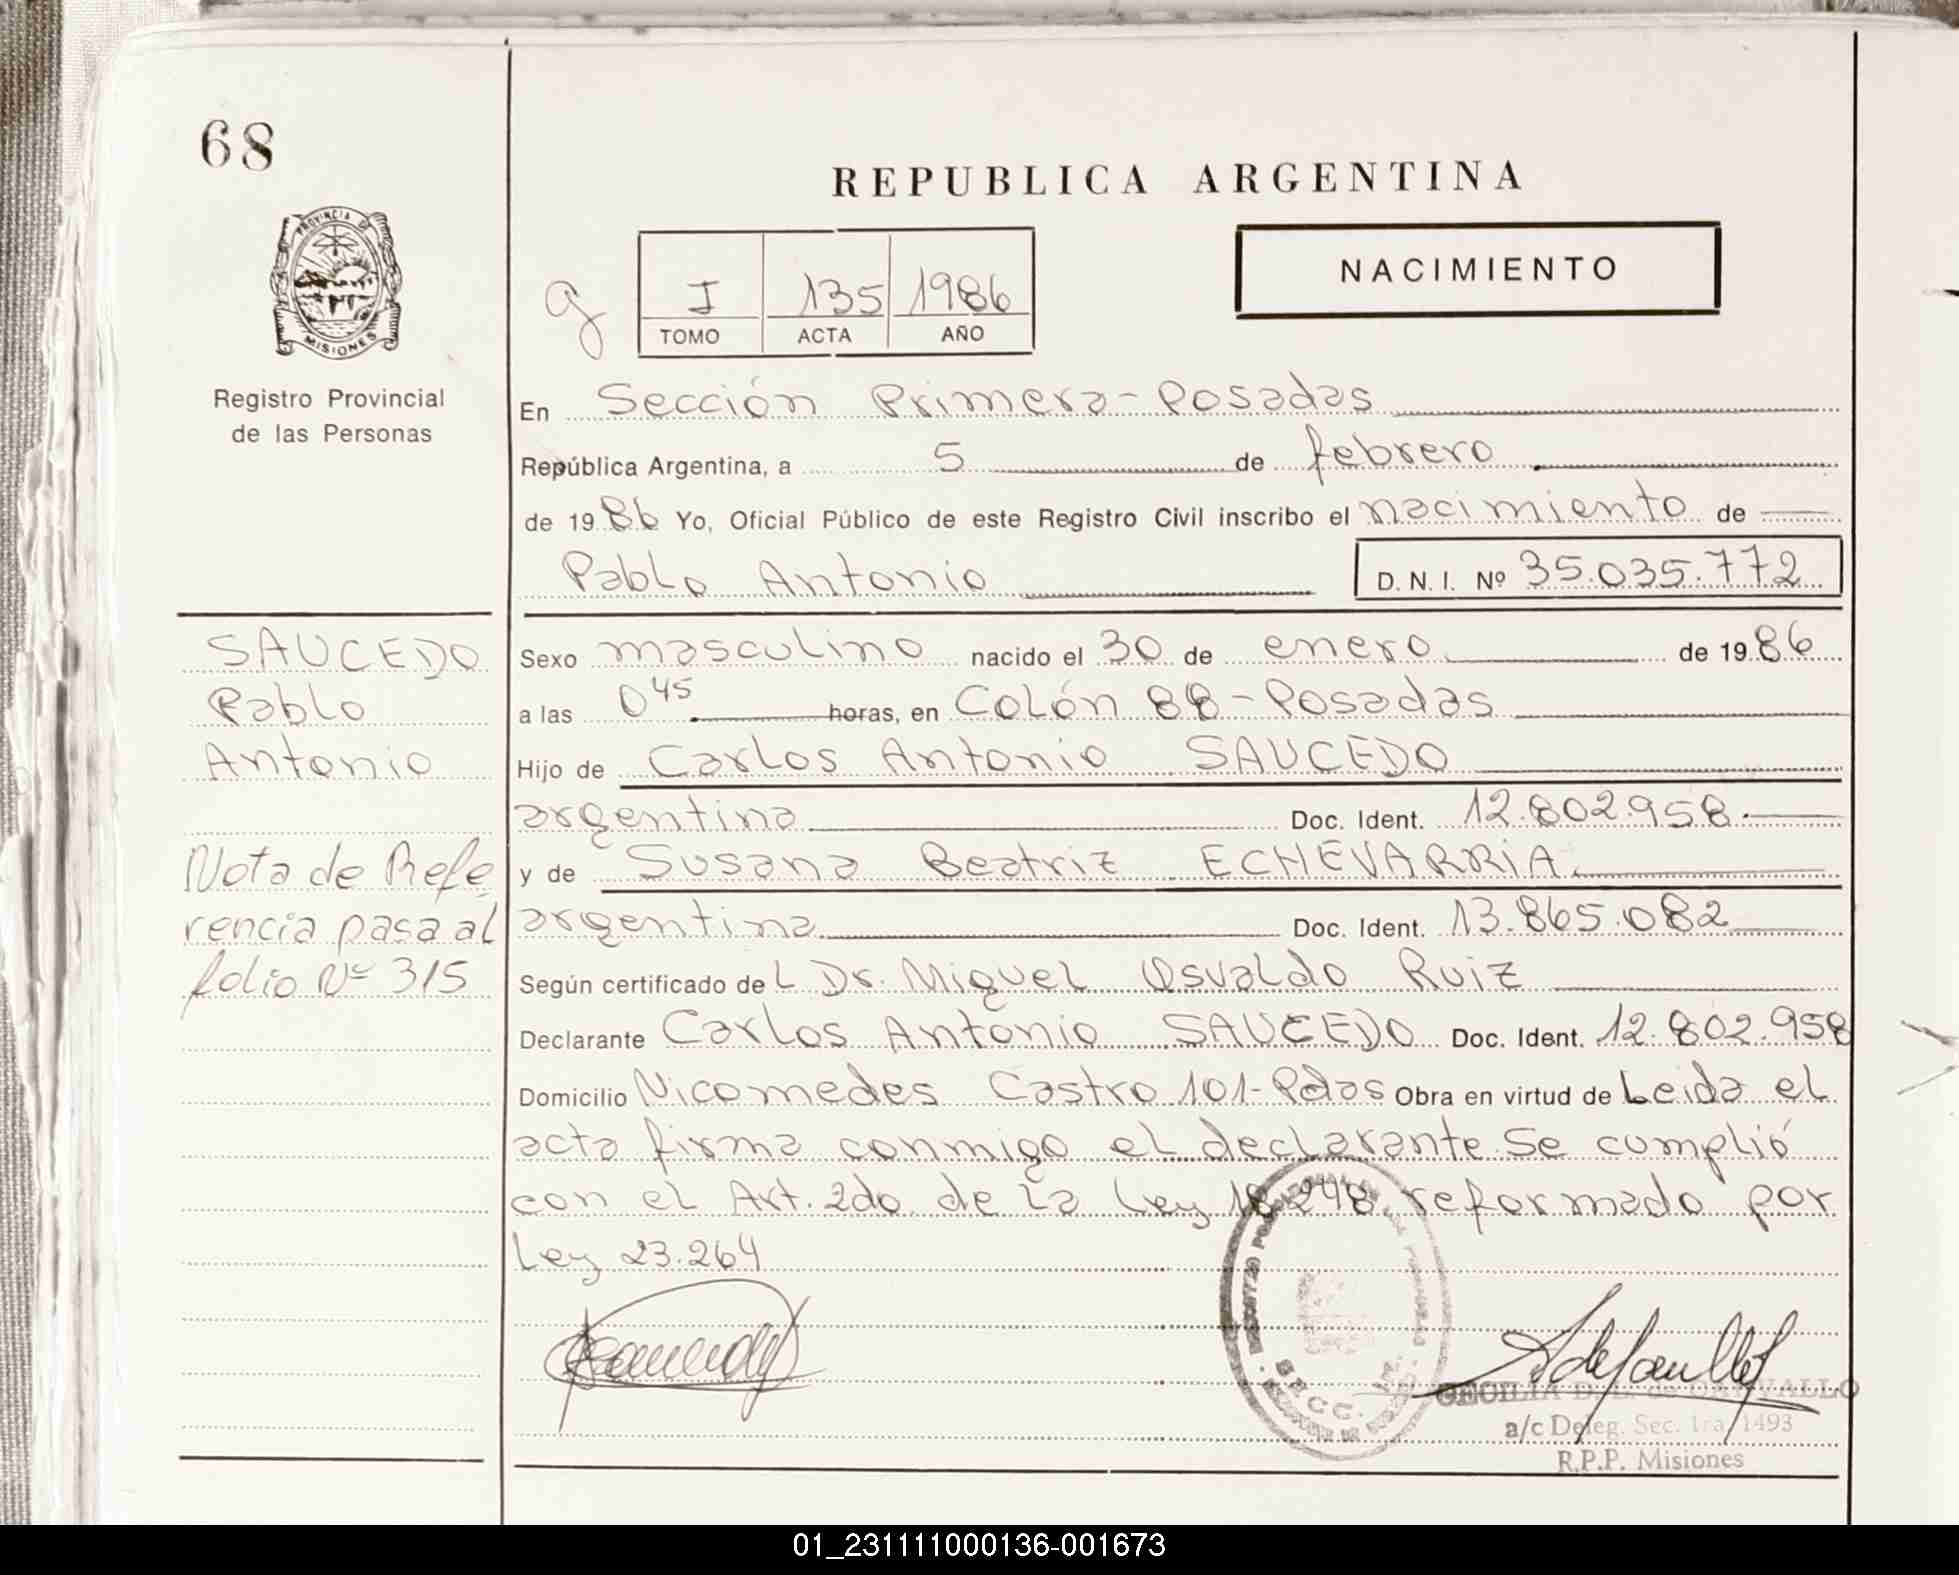 68
PROVINCIA DE
MISIONES
Registro Provincial
de las Personas
REPUBLICA ARGENTINA
NACIMIENTO
g
I 135 1986
TOMO ACTA AÑO
En Sección Primera-Posadas
República Argentina, a 5 de febrero
de 1986 Yo, Oficial Público de este Registro Civil inscribo el nacimiento de
Pablo Antonio D.N.I. Nº 35.035.772
SAUCEDO
Pablo
Antonio
Nota de Refe
rencia pasa al
folio Nº 315
Sexo masculino nacido el 30 de enero de 1986
a las 0 45 horas, en Colón 88-Posadas
Hijo de Carlos Antonio SAUCEDO
argentina Doc. Ident. 12.802.958.
y de Susana Beatriz ECHEVARRIA
argentina Doc. Ident. 13.865.082
Según certificado deL Dr. Miguel Osvaldo Ruiz
Declarante Carlos Antonio SAUCEDO Doc. Ident. 12.802.958
Domicilio Nicomedes Castro 101-Pdas Obra en virtud de Leida el
acta firma conmigo el declarante. Se cumplió
con el Art. 2do. de la Ley 18.248 reformado por
Ley 23.264
SECC. 1ra.
CECILIA D.
a/c Deleg. Sec. 1ra. 1493
R.P.P. Misiones
01_231111000136-001673